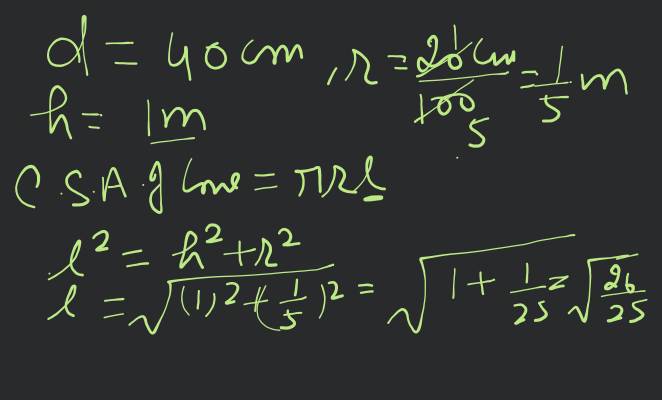 d = 40cm , r = 20cm/100 = 1/5 m
h = 1m
C.S.A of Cone = πrl
l² = h² + r²
l = √((1)² + (1/5)²) = √(1 + 1/25) = √(26/25)